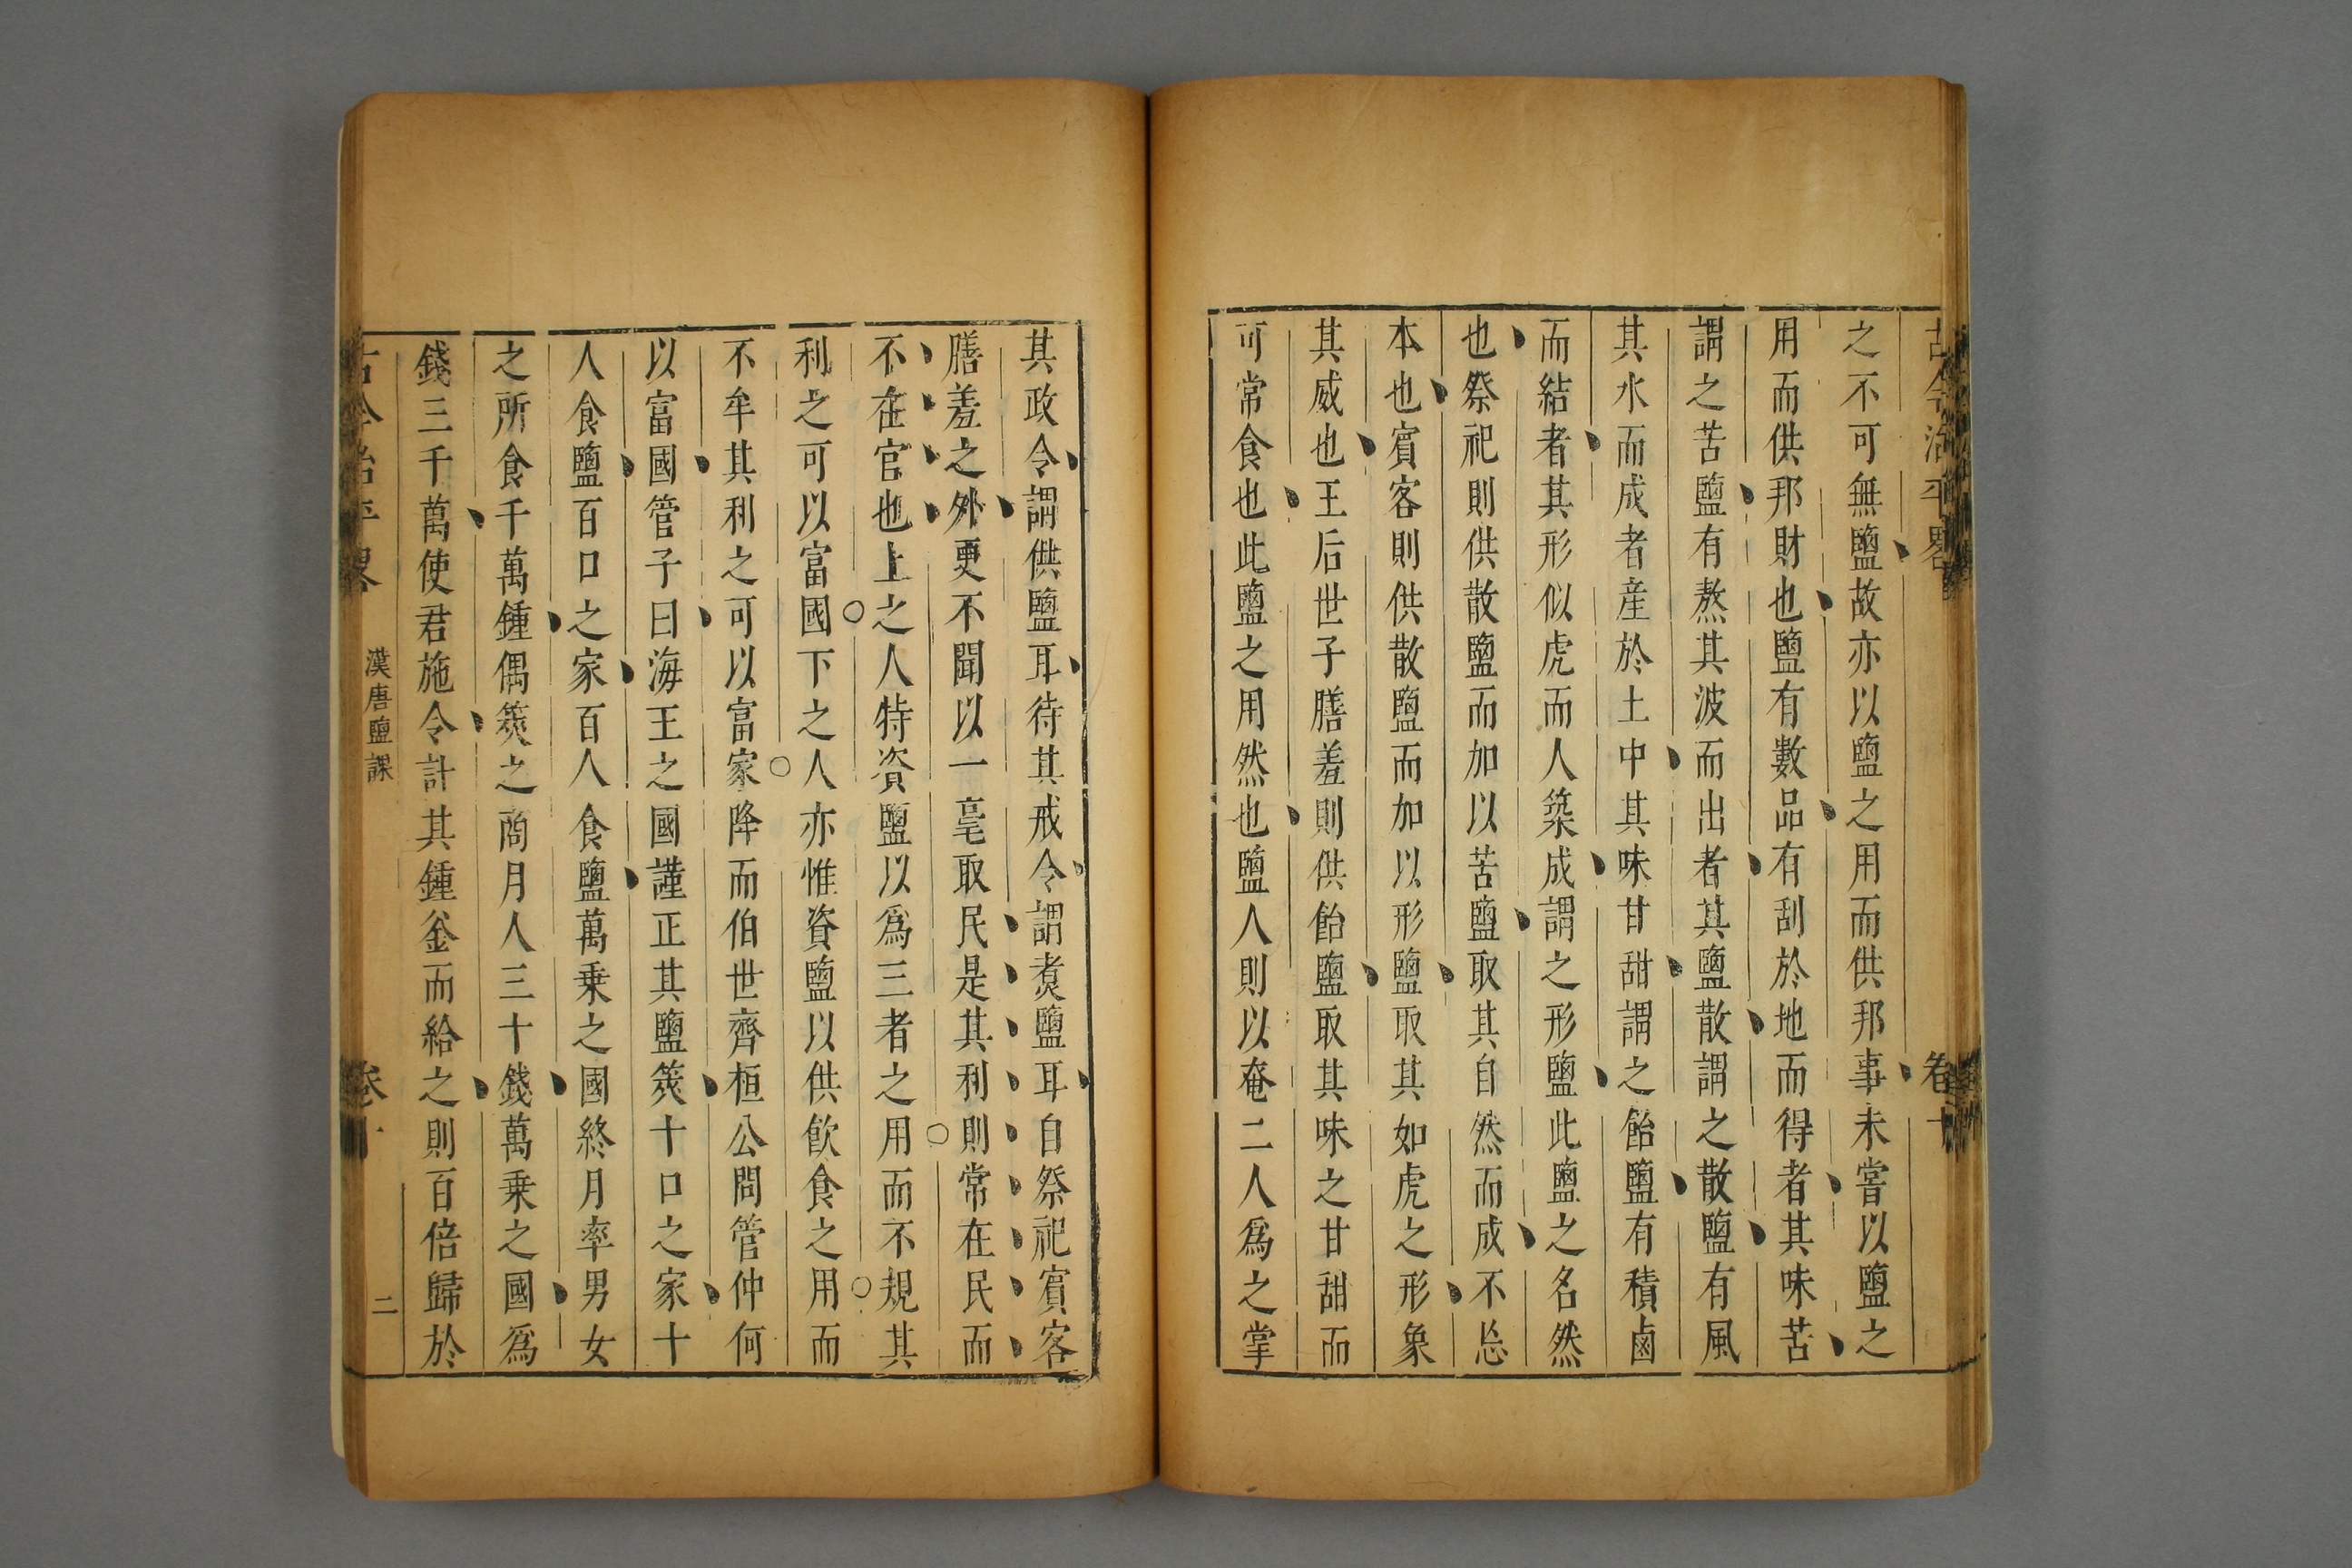 古今治平畧 卷十
之不可無鹽故亦以鹽之用而供邦事未嘗以鹽之
用而供邦財也鹽有數品有刮於地而得者其味苦
謂之苦鹽有熬其波而出者其鹽散謂之散鹽有風
其水而成者産於土中其味甘甜謂之飴鹽有積鹵
而結者其形似虎而人築成謂之形鹽此鹽之名然
也祭祀則供散鹽而加以苦鹽取其自然而成不忘
本也賓客則供散鹽而加以形鹽取其如虎之形象
其威也王后世子膳羞則供飴鹽取其味之甘甜而
可常食也此鹽之用然也鹽人則以奄二人爲之掌
其政令謂供鹽耳待其戒令謂煑鹽耳自祭祀賓客
膳羞之外更不聞以一毫取民是其利則常在民而
不在官也上之人特資鹽以爲三者之用而不規其
利之可以富國下之人亦惟資鹽以供飲食之用而
不牟其利之可以富家降而伯世齊桓公問管仲何
以富國管子曰海王之國謹正其鹽筴十口之家十
人食鹽百口之家百人食鹽萬乗之國終月率男女
之所食千萬鍾偶筴之商月人三十錢萬乗之國爲
錢三千萬使君施令計其鍾釜而給之則百倍歸於
古今治平畧 漢唐鹽課 卷十 二